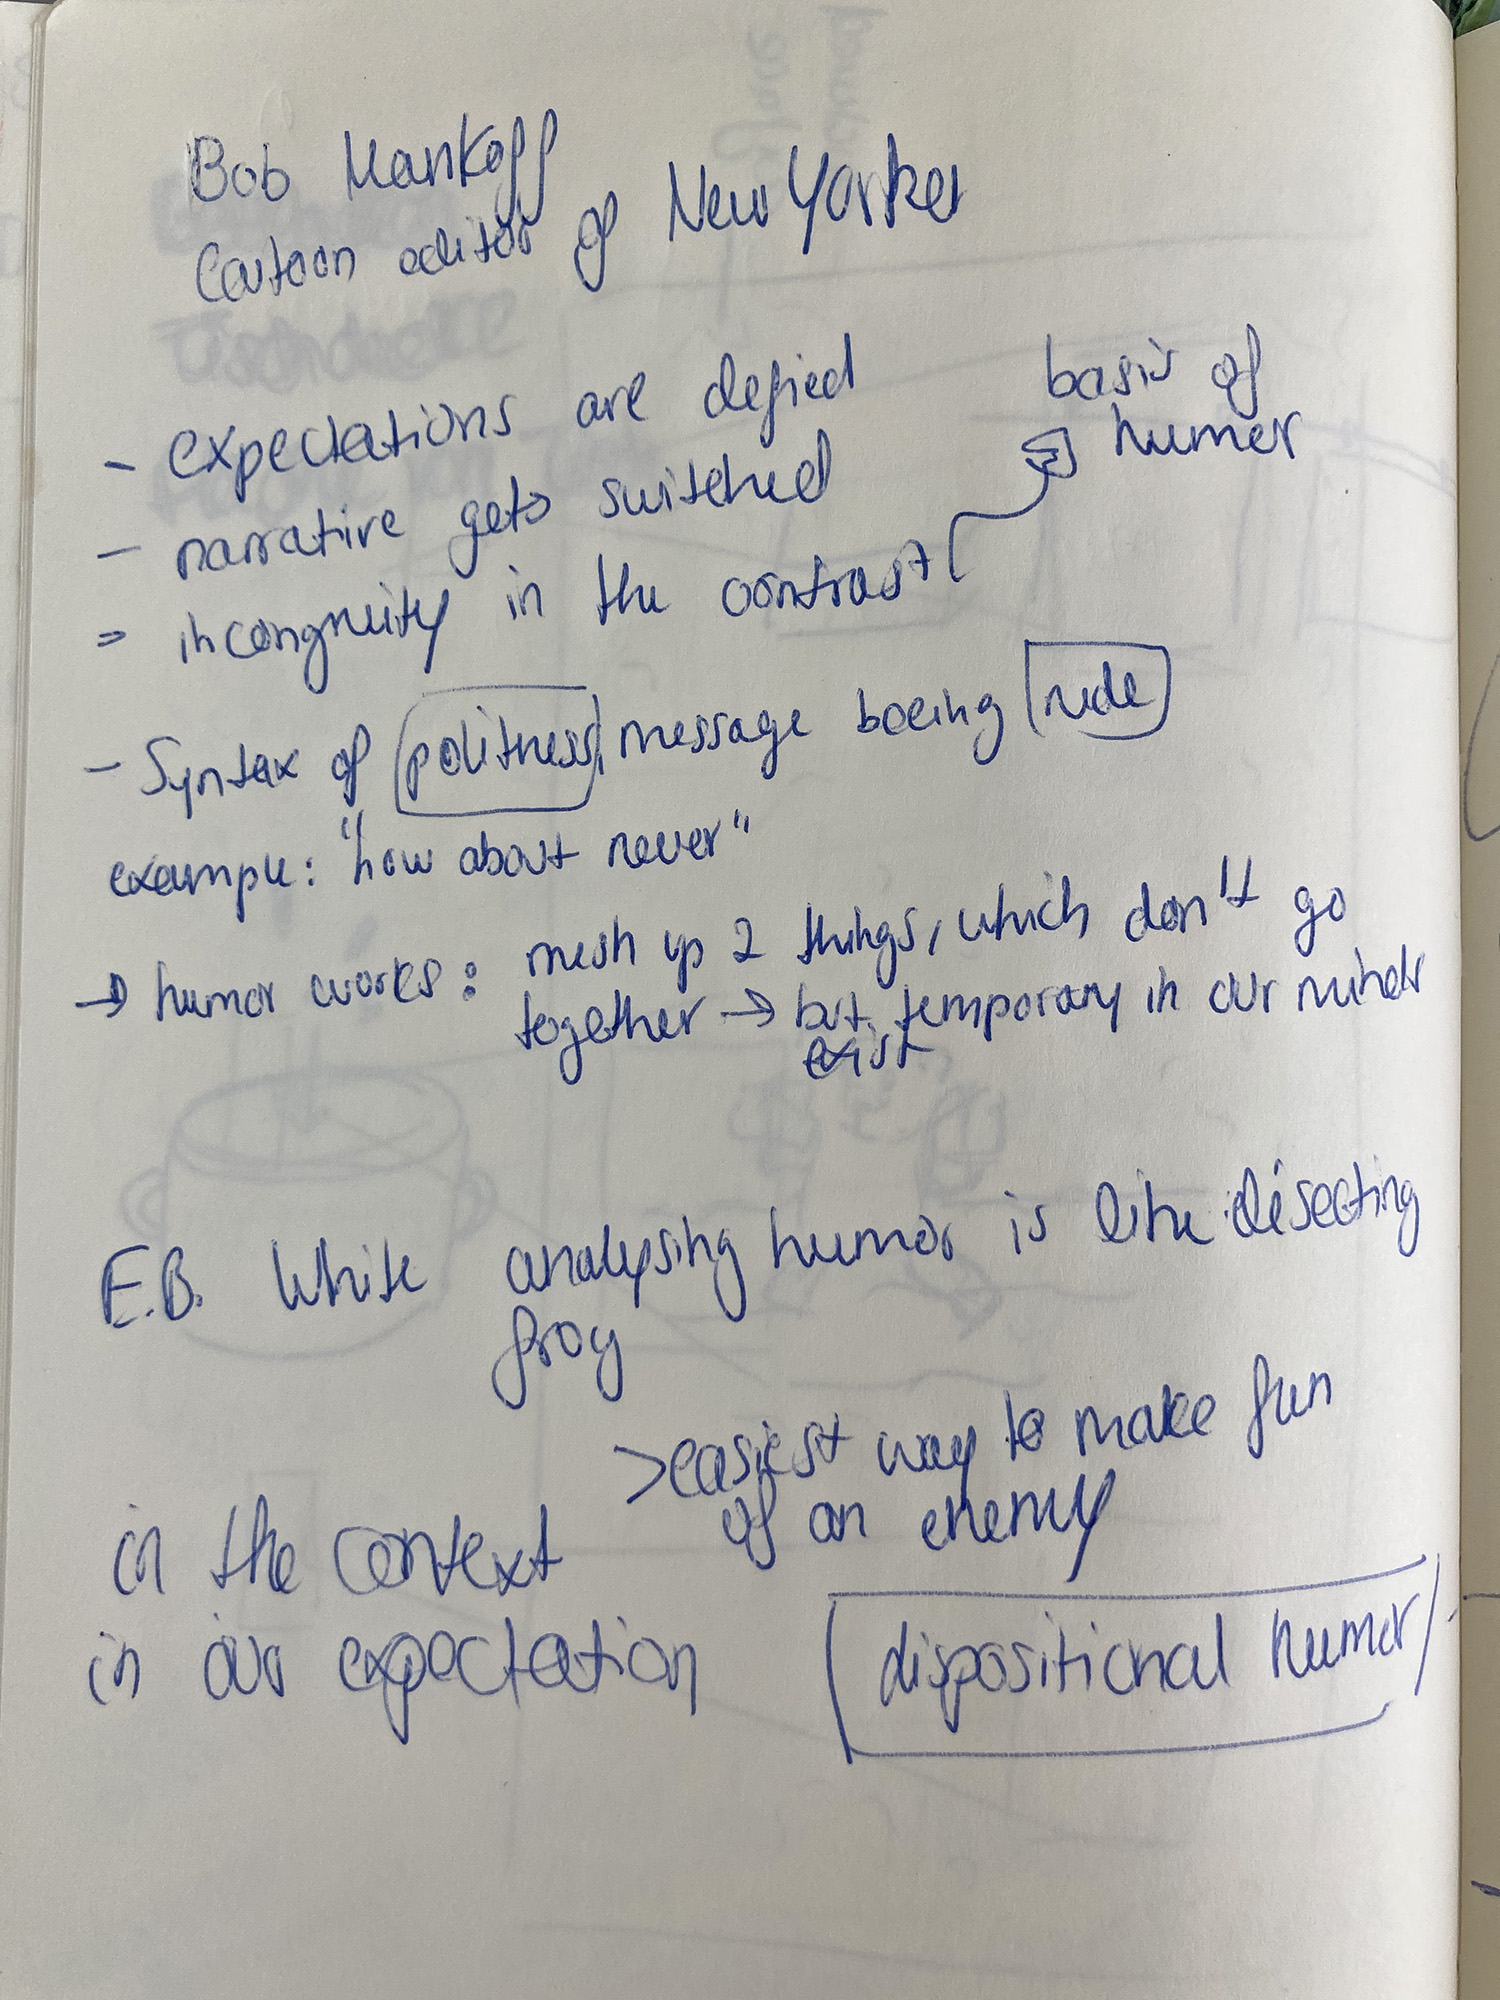 Bob Mankoff
Cartoon editor of New Yorker
- expectations are defied
basis of
humor
- narrative gets switched
= incongruity in the contrast
- Syntax of politness, message beeing rude
example: "how about never"
→ humor works: mesh up 2 things, which don't go
together → but temporary in our minds
exist
E.B. White analysing humor is like disecting
frog
>easiest way to make fun
of an enemy
in the context
in our expectation
dispositional humor